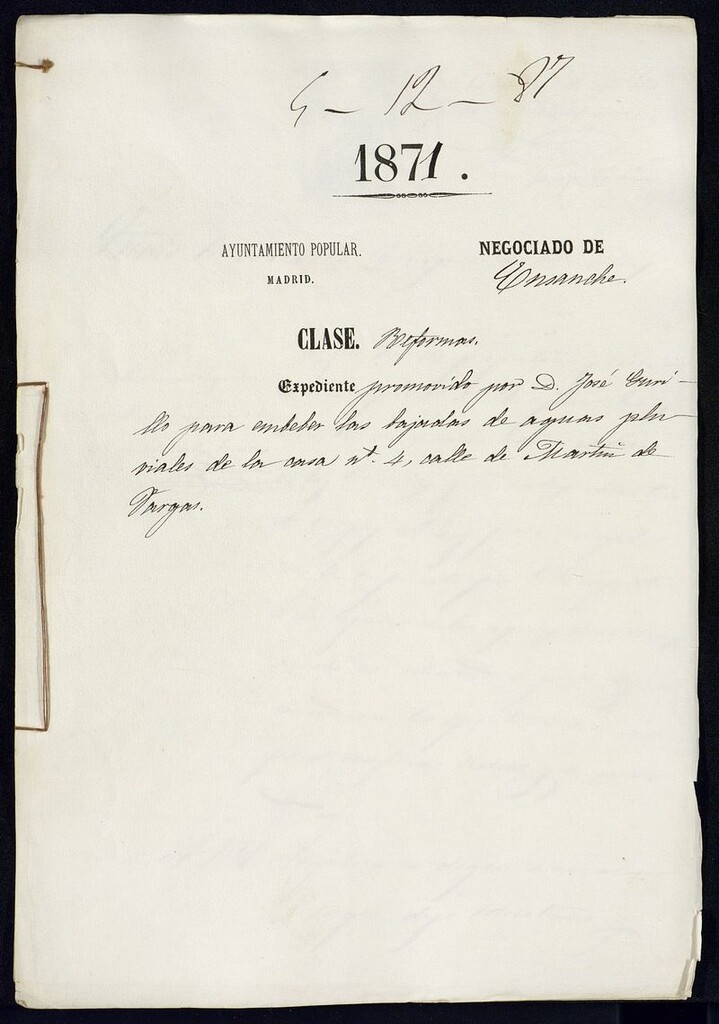 5 - 12 - 87
1871.
AYUNTAMIENTO POPULAR.
MADRID.
NEGOCIADO DE
Ensanche.
CLASE. Reformas.
Expediente promovido por D. José Curi-
llo para embeber las bajadas de aguas plu
viales de la casa nº. 4, calle de Martin de
Vargas.